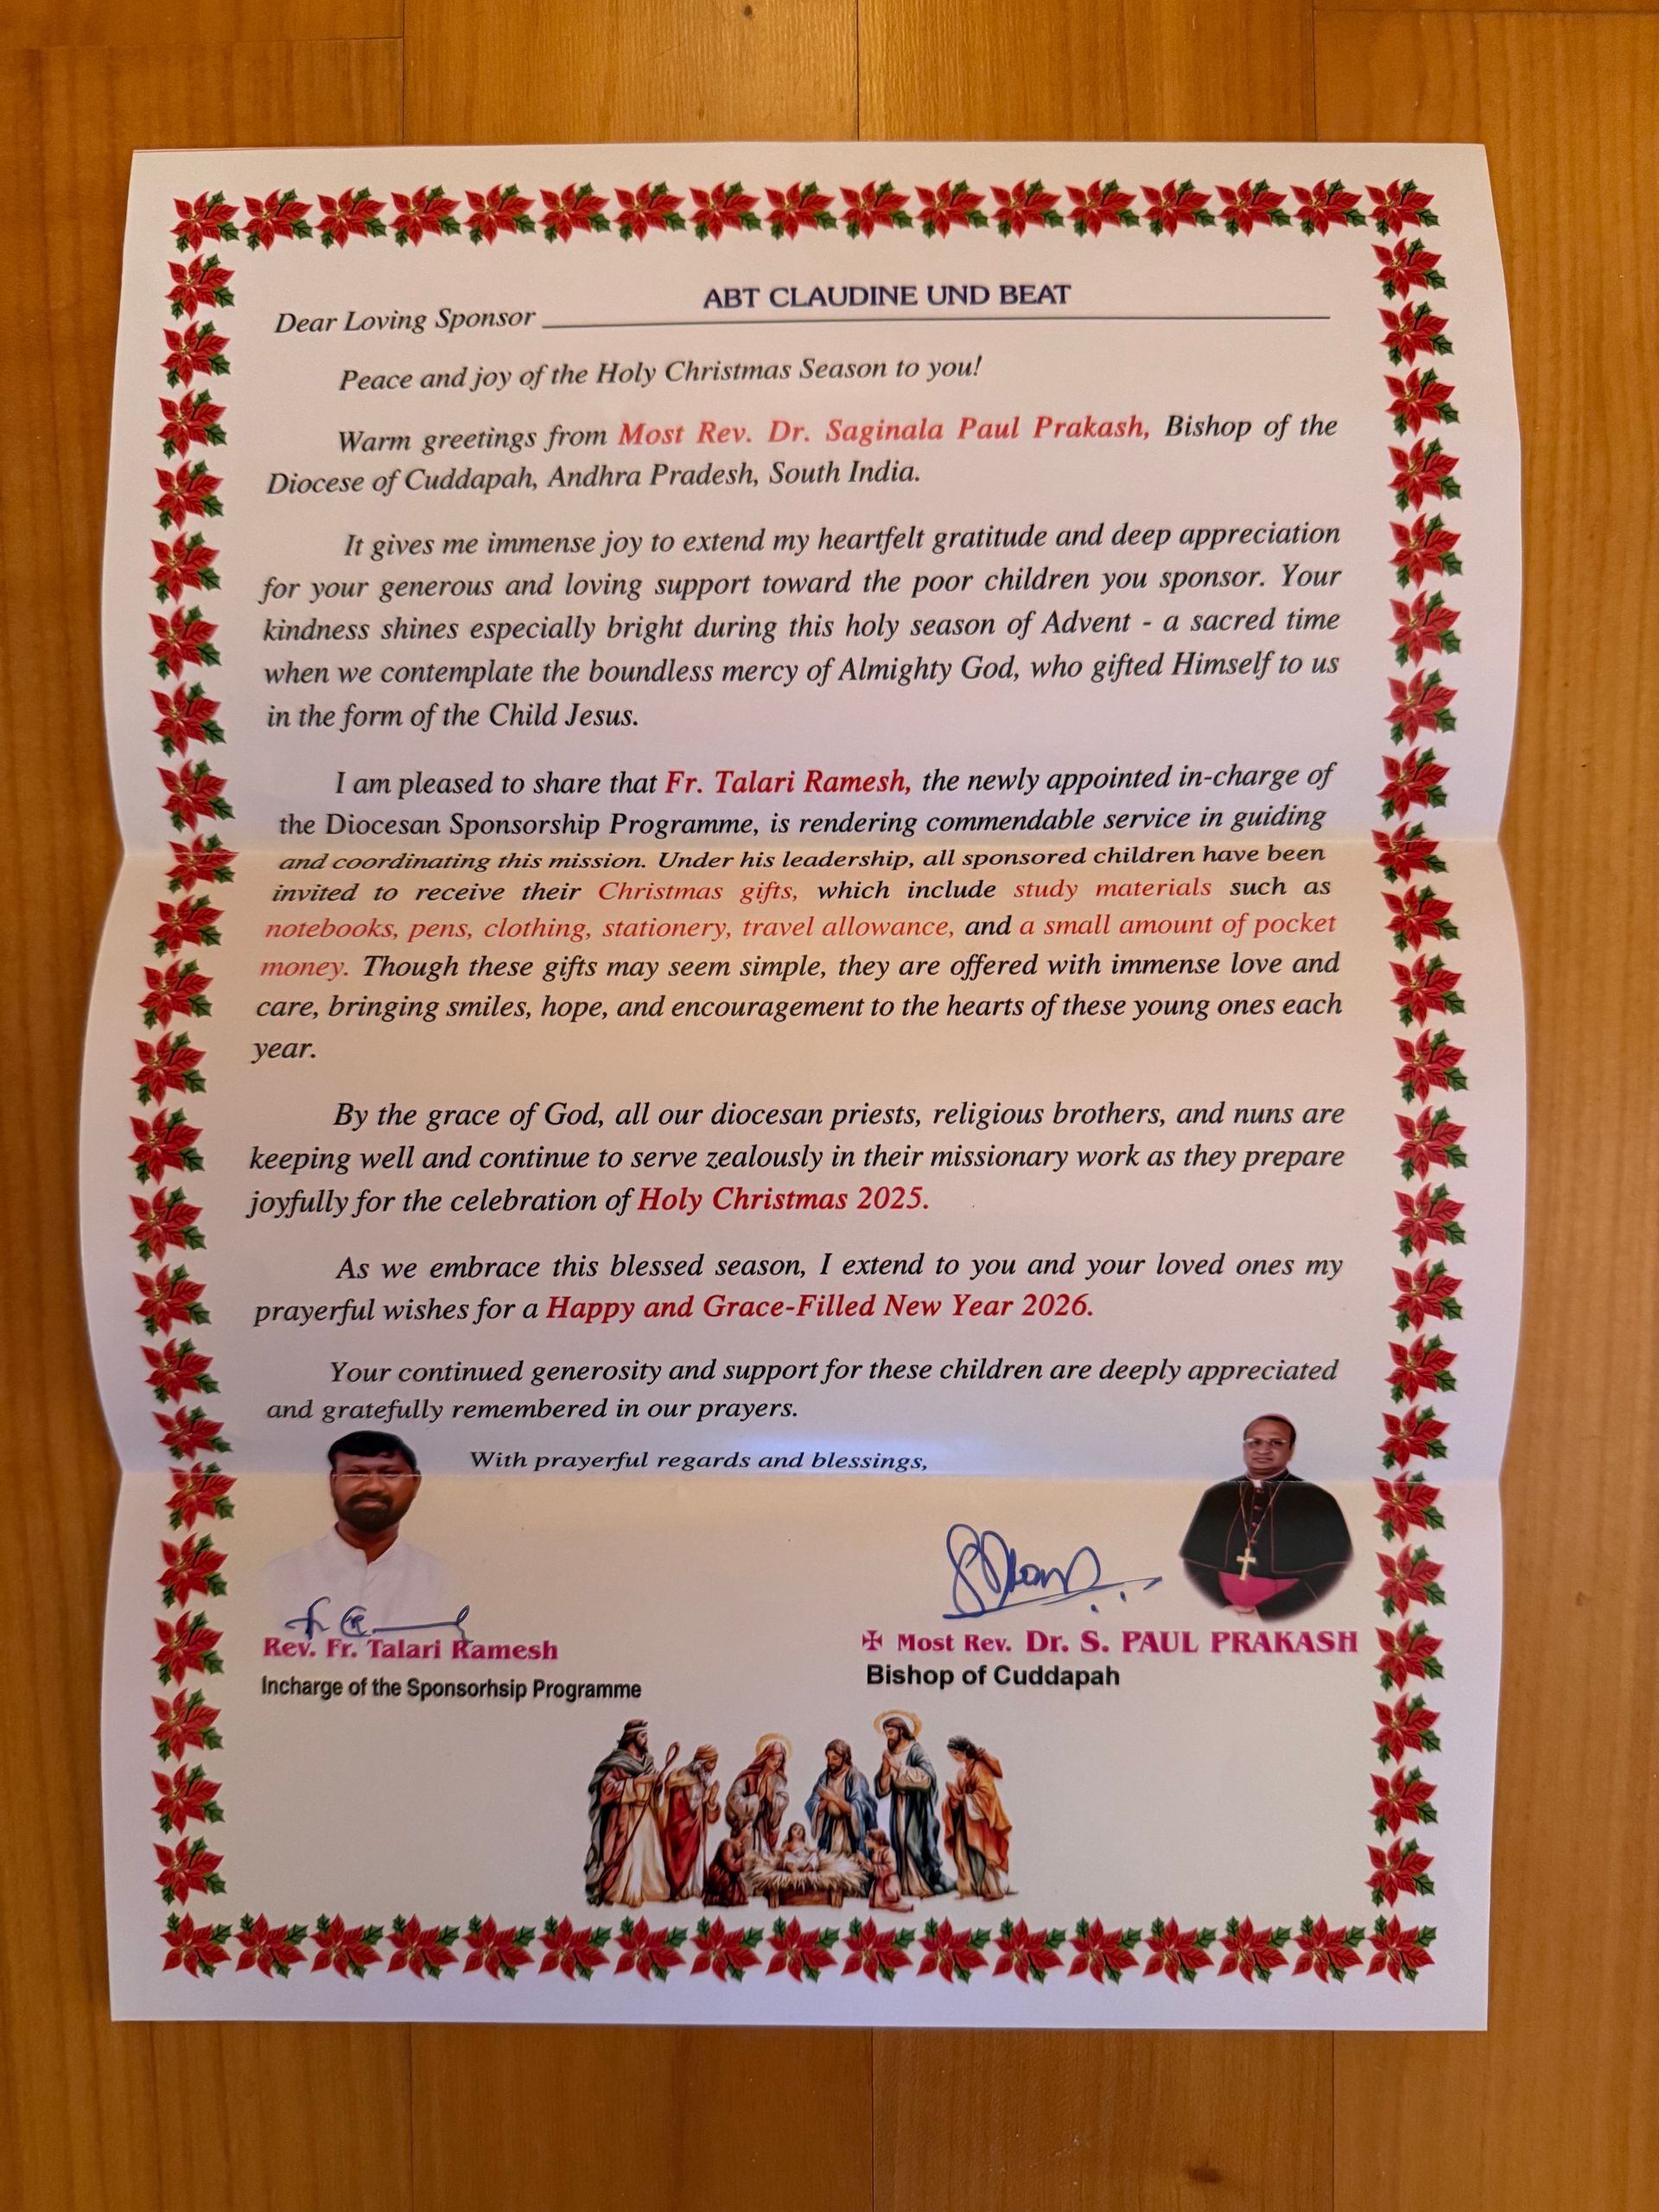 Dear Loving Sponsor ABT CLAUDINE UND BEAT
Peace and joy of the Holy Christmas Season to you!
Warm greetings from Most Rev. Dr. Saginala Paul Prakash, Bishop of the
Diocese of Cuddapah, Andhra Pradesh, South India.
It gives me immense joy to extend my heartfelt gratitude and deep appreciation
for your generous and loving support toward the poor children you sponsor. Your
kindness shines especially bright during this holy season of Advent - a sacred time
when we contemplate the boundless mercy of Almighty God, who gifted Himself to us
in the form of the Child Jesus.
I am pleased to share that Fr. Talari Ramesh, the newly appointed in-charge of
the Diocesan Sponsorship Programme, is rendering commendable service in guiding
and coordinating this mission. Under his leadership, all sponsored children have been
invited to receive their Christmas gifts, which include study materials such as
notebooks, pens, clothing, stationery, travel allowance, and a small amount of pocket
money. Though these gifts may seem simple, they are offered with immense love and
care, bringing smiles, hope, and encouragement to the hearts of these young ones each
year.
By the grace of God, all our diocesan priests, religious brothers, and nuns are
keeping well and continue to serve zealously in their missionary work as they prepare
joyfully for the celebration of Holy Christmas 2025.
As we embrace this blessed season, I extend to you and your loved ones my
prayerful wishes for a Happy and Grace-Filled New Year 2026.
Your continued generosity and support for these children are deeply appreciated
and gratefully remembered in our prayers.
With prayerful regards and blessings,
Rev. Fr. Talari Ramesh
Incharge of the Sponsorhsip Programme
✠ Most Rev. Dr. S. PAUL PRAKASH
Bishop of Cuddapah